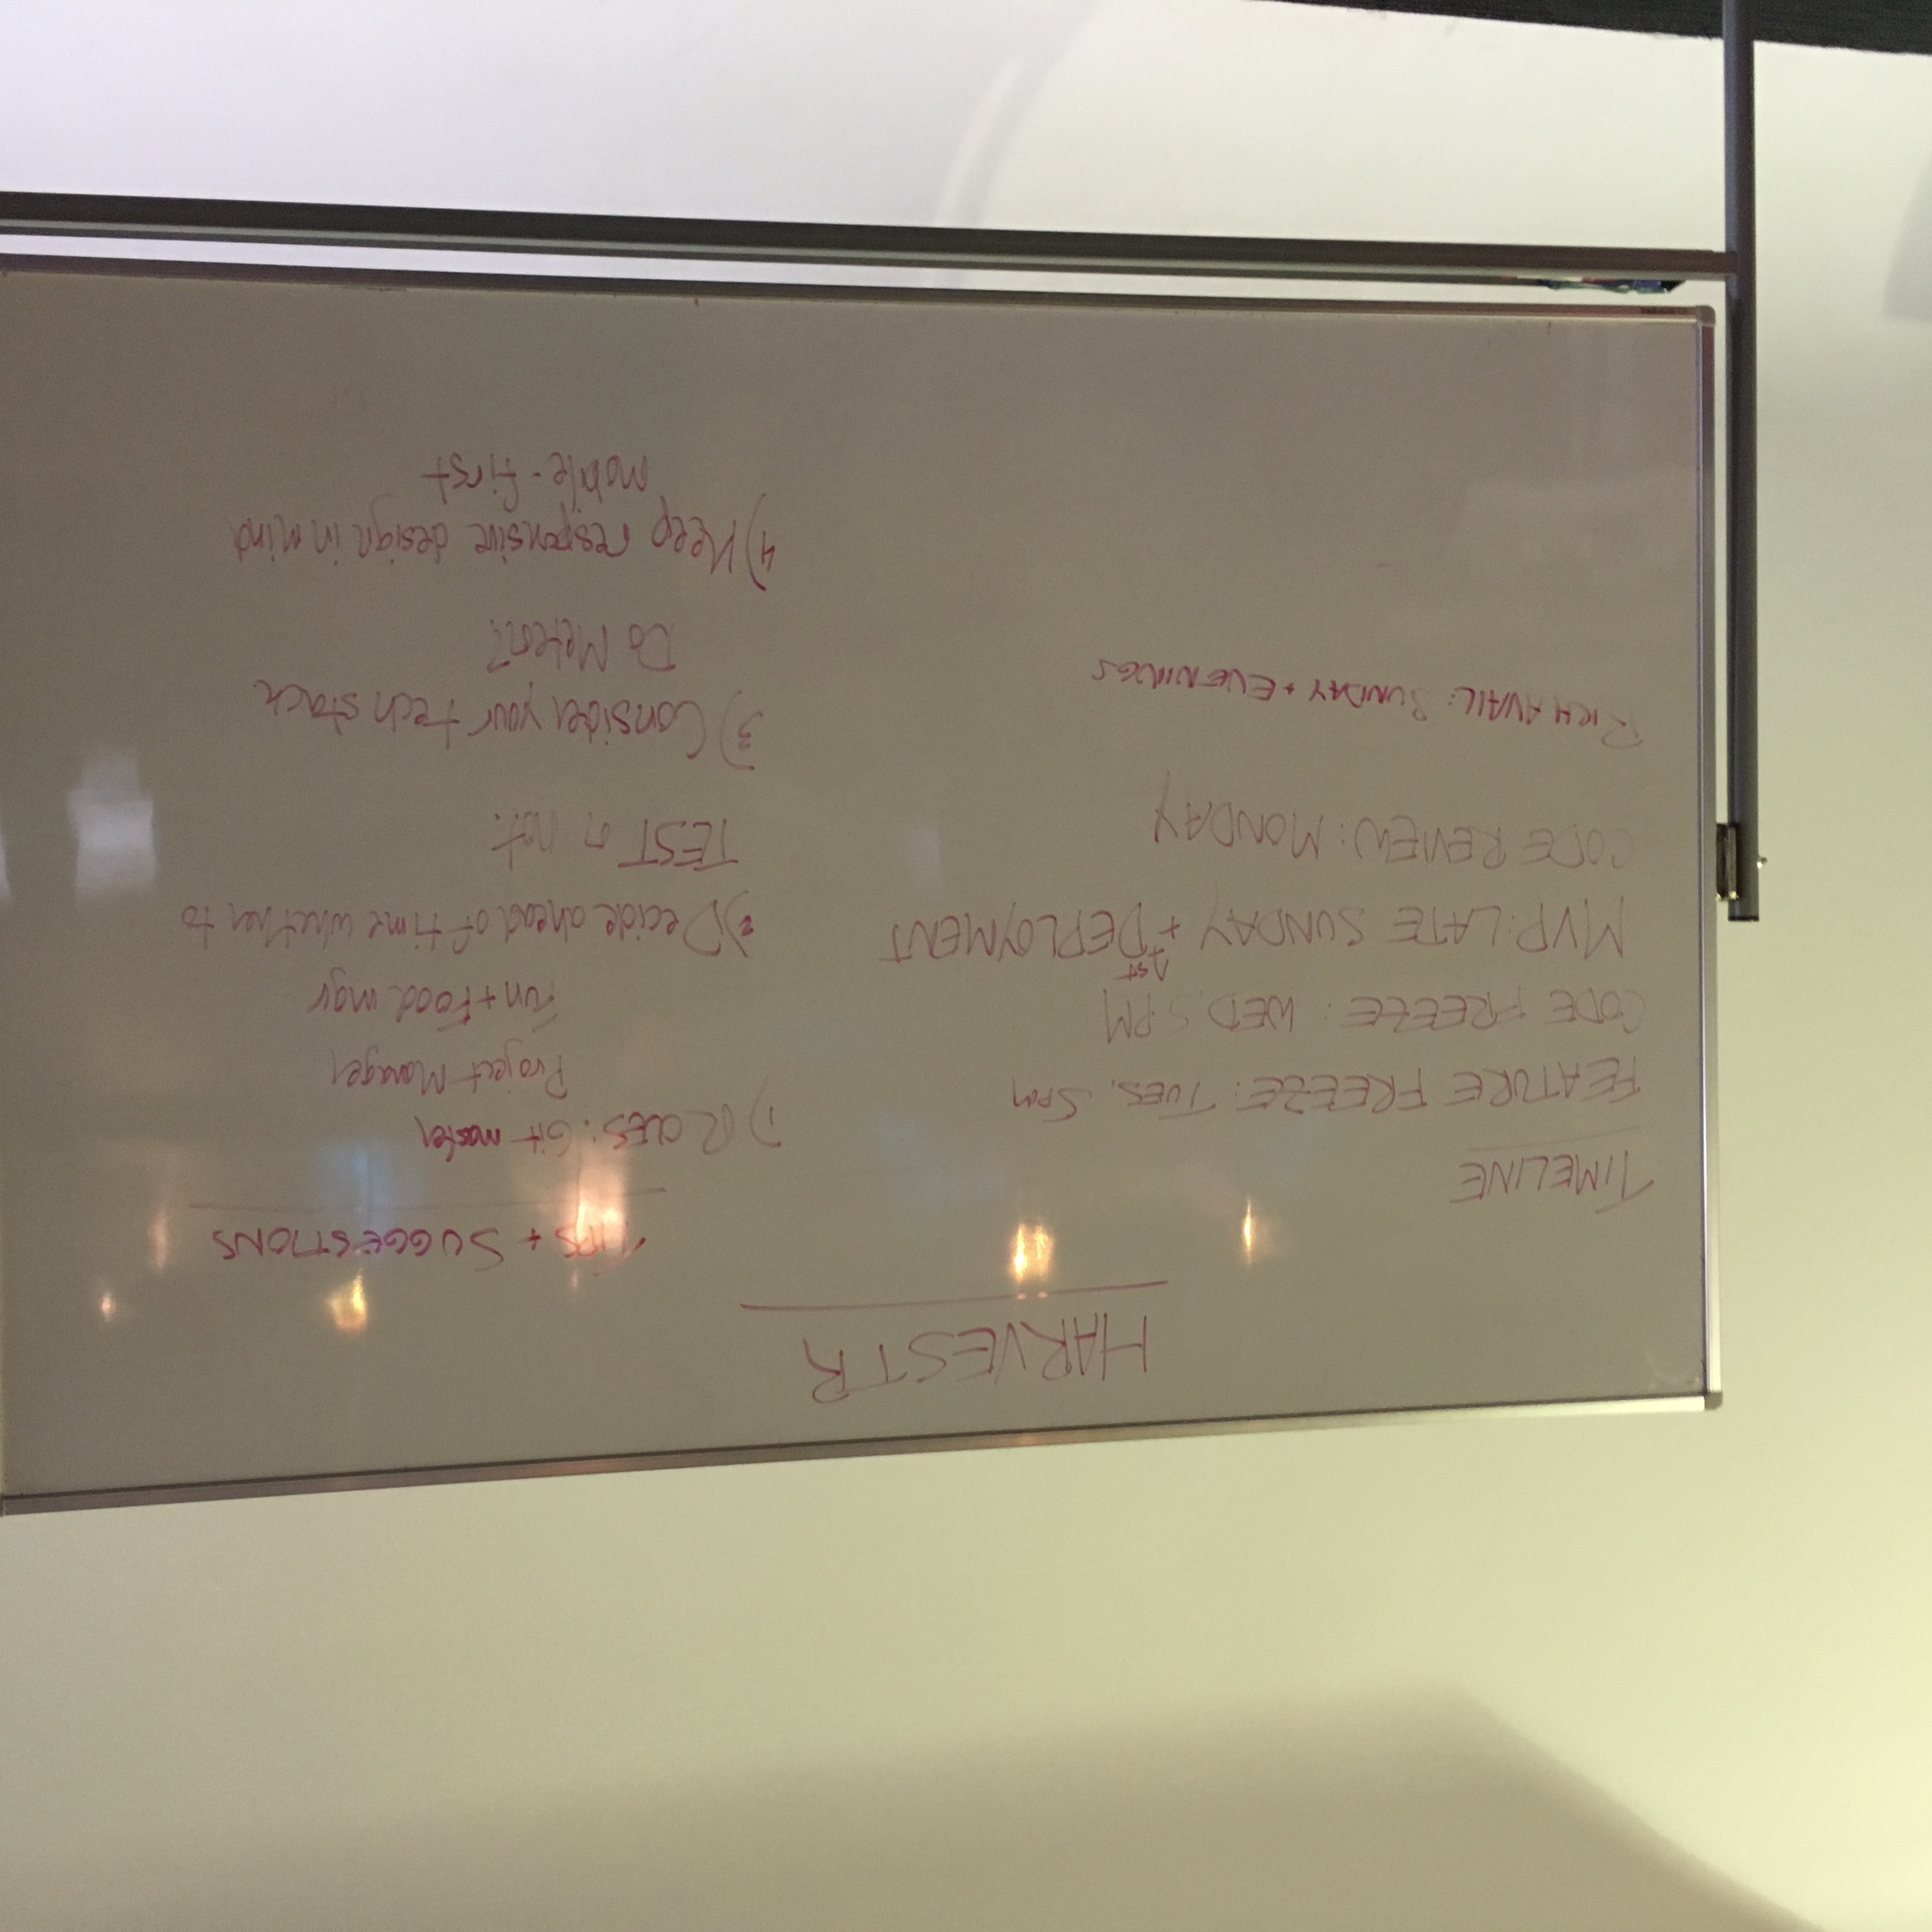 HARVESTR
TIMELINE
FEATURE FREEZE: TUES, 5PM
CODE FREEZE: WED 5PM
MVP: LATE SUNDAY + 1st DEPLOYMENT
CODE REVIEW: MONDAY
RICH AVAIL: SUNDAY + EVENINGS
TIPS + SUGGESTIONS
1) ROLES: Git master
Project Manager
Fun + Food mgr
2) Decide ahead of time whether to
TEST or not.
3) Consider your tech stack.
Do Meteor?
4) Keep responsive design in mind
mobile-first